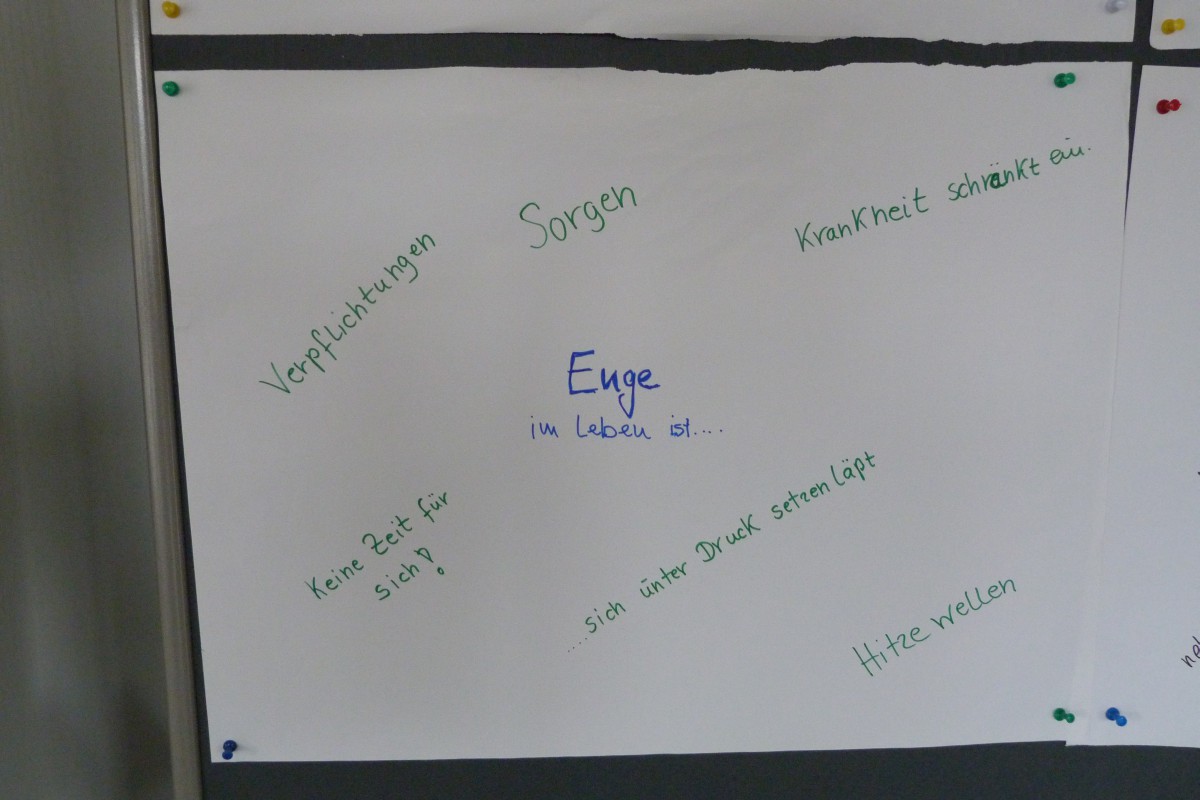 Sorgen
Krankheit schränkt ein.
Verpflichtungen
Enge
im Leben ist....
Keine Zeit für
sich!
....sich unter Druck setzen läpt
Hitze wellen